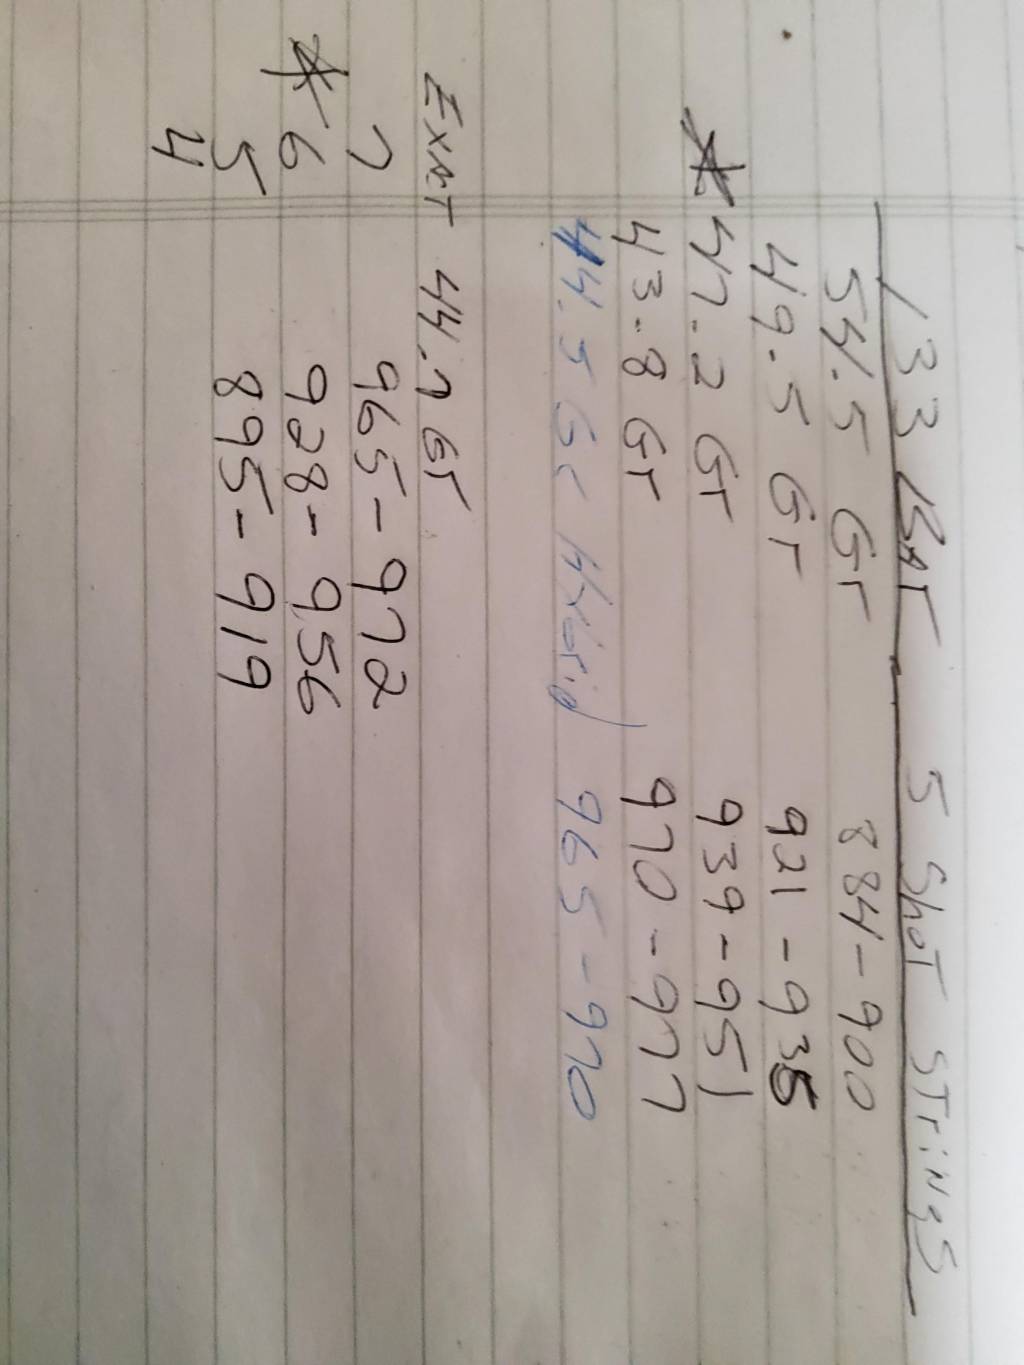 133 BAT 5 ShoT STrings
54.5 Gr 884-900
49.5 Gr 921-935
* 47.2 Gr 939-951
43.8 Gr 970-977
44.5 Gr Hybrid 965-970
ExAT 44.7 Gr
7 965-972
* 6 928-956
5 895-919
4